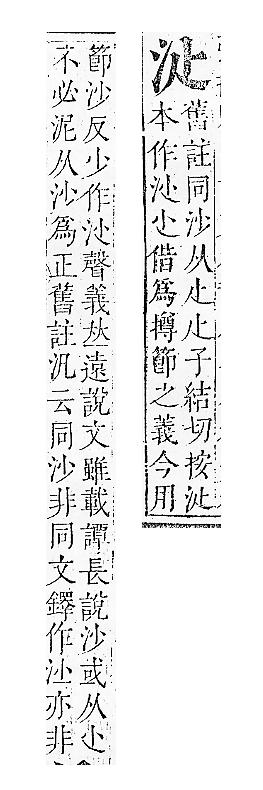 𣲡
舊註同沙从尐尐子結切按𣲡
本作𣲡尐借爲撙節之義今用
節沙反少作𣲡聲義𠀤遠說文雖載譚長說沙或从尐
不必泥从沙爲正舊註汎云同沙非同文鐸作𣲡亦非